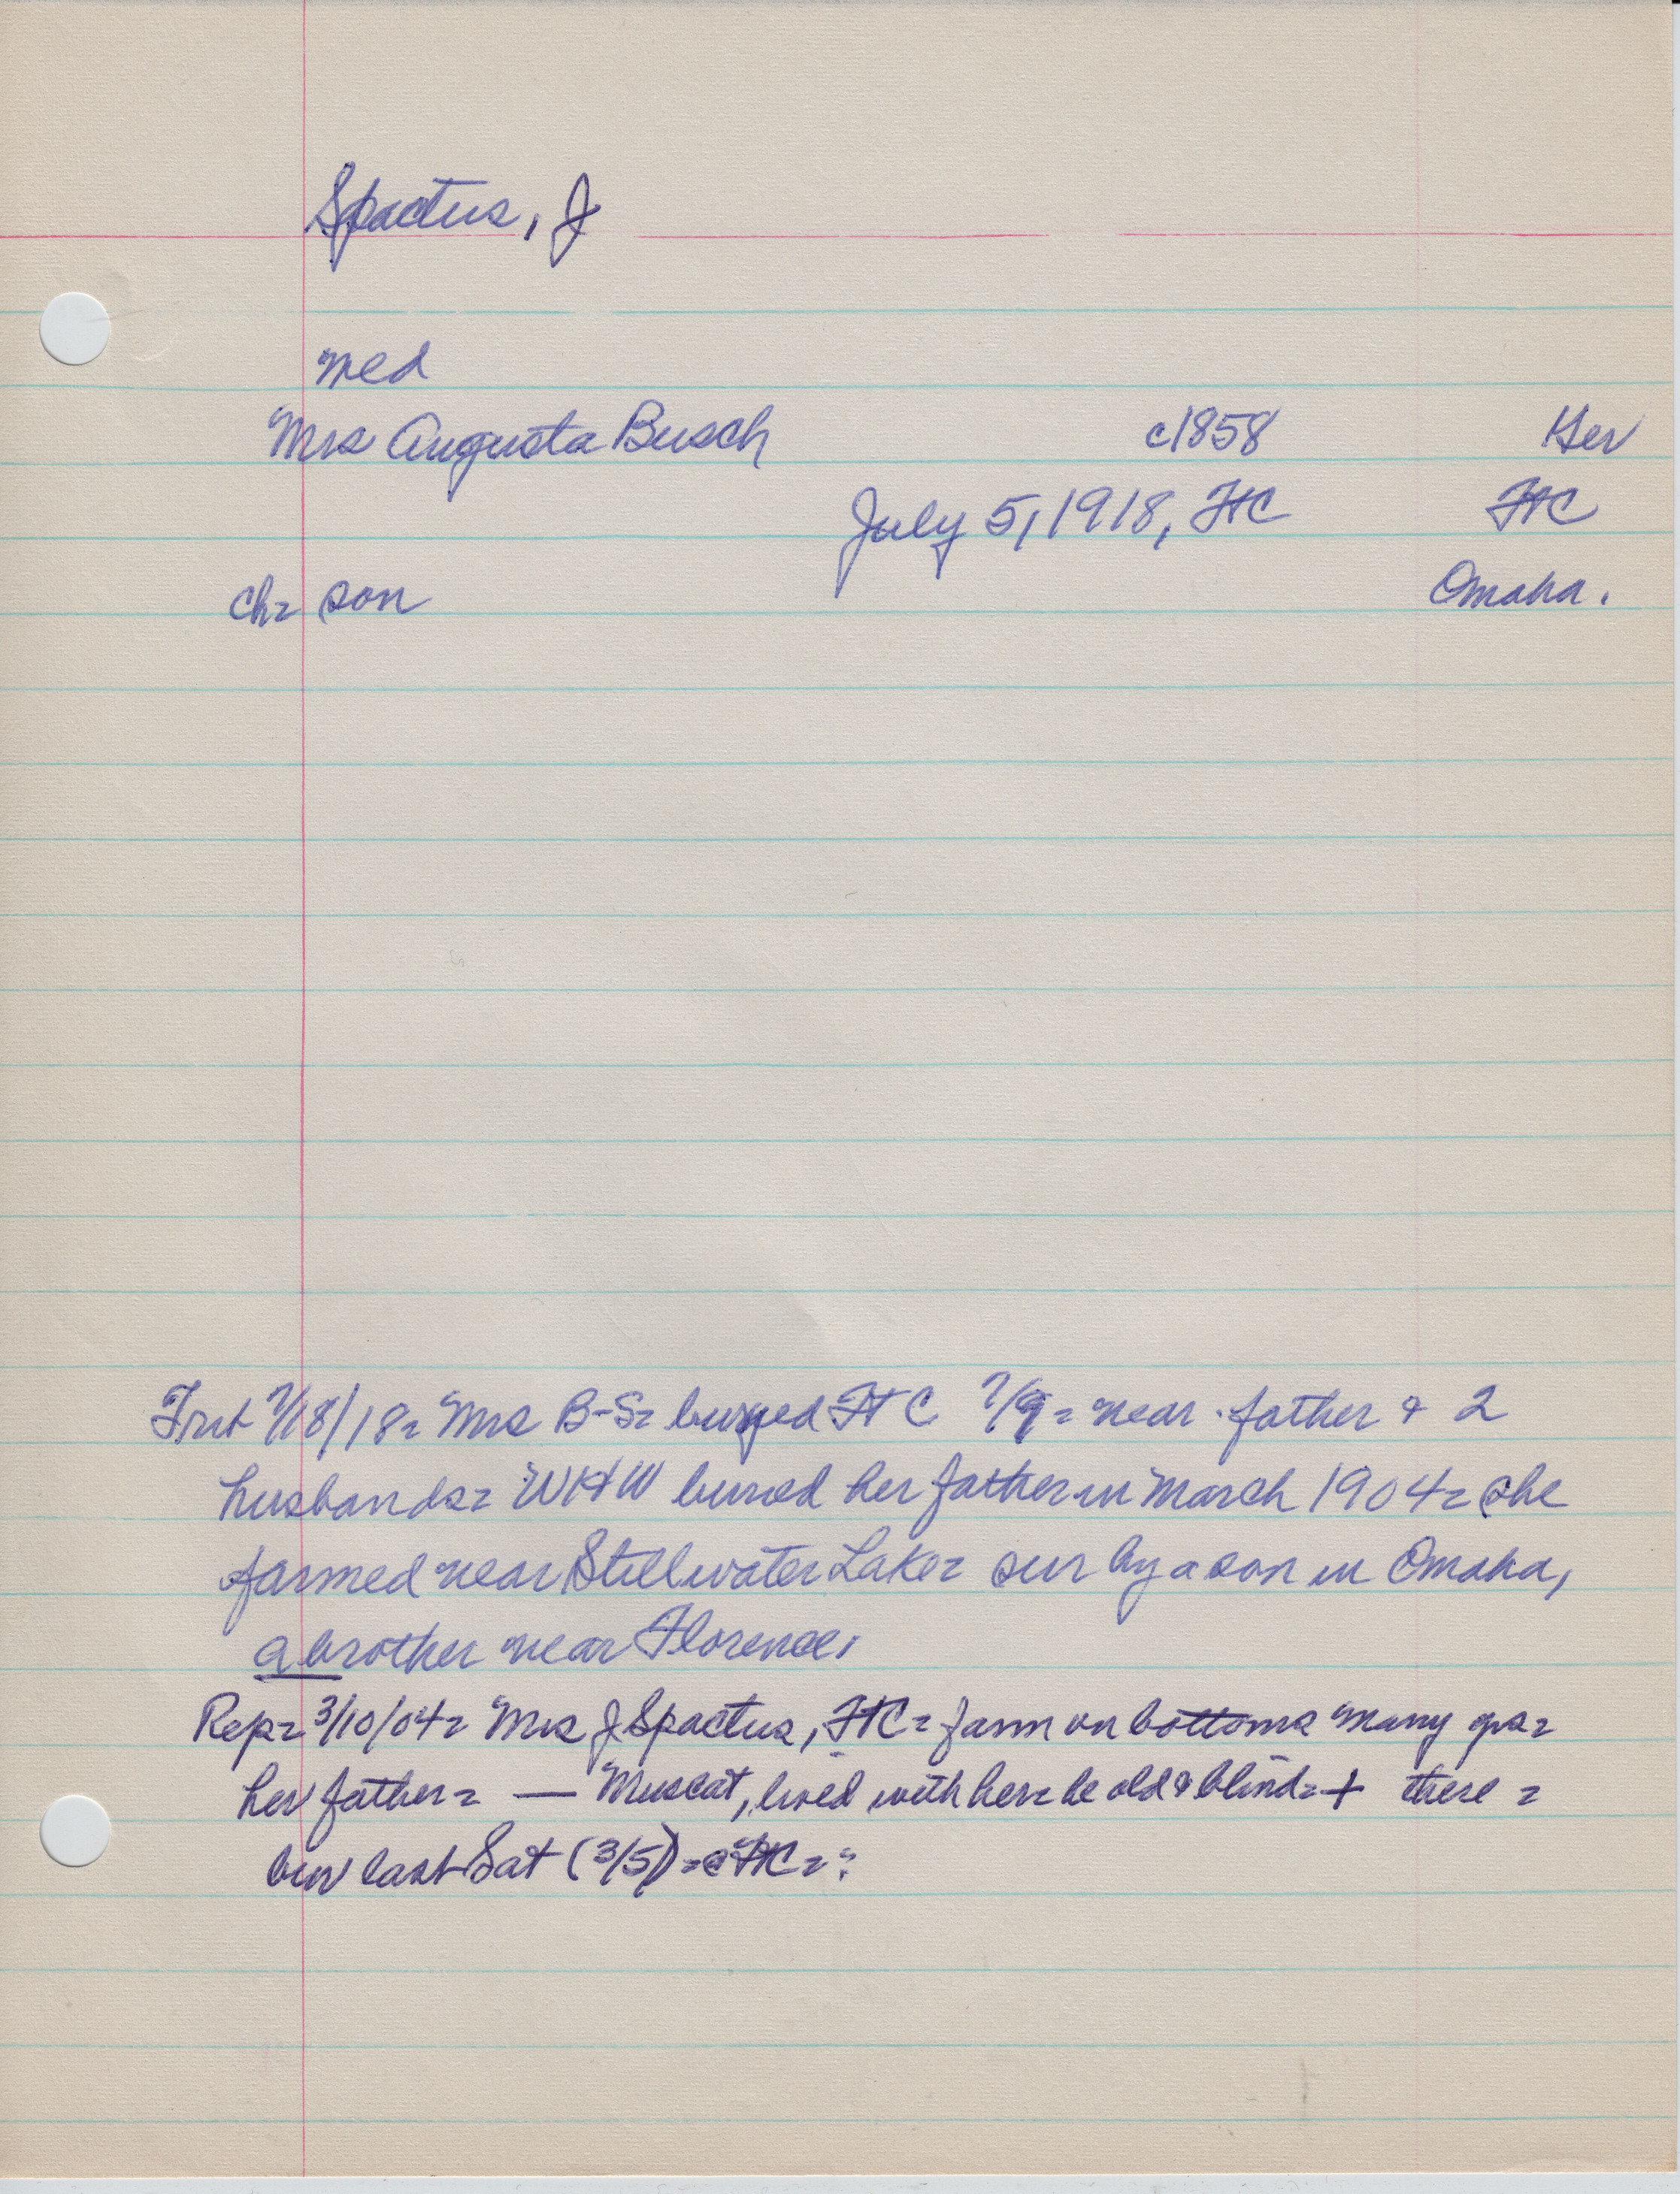 Spactus, J
med
Mrs Augusta Busch c1858 Ger
July 5, 1918, FtC FtC
ch= son Omaha.
7/18/18= Mrs B-S= buryed Ft C 7/9= near father & 2
husbands= WHW buried her father in March 1904= she
farmed near Stillwater Lake= sur by a son in Omaha,
a brother near Florence.
Rep= 3/10/04= Mrs J Spactus, FtC= farm on bottoms many yrs=
her father= — Muscat, lived with her= he old & blind= + there =
bur last Sat (3/5) = FtC =